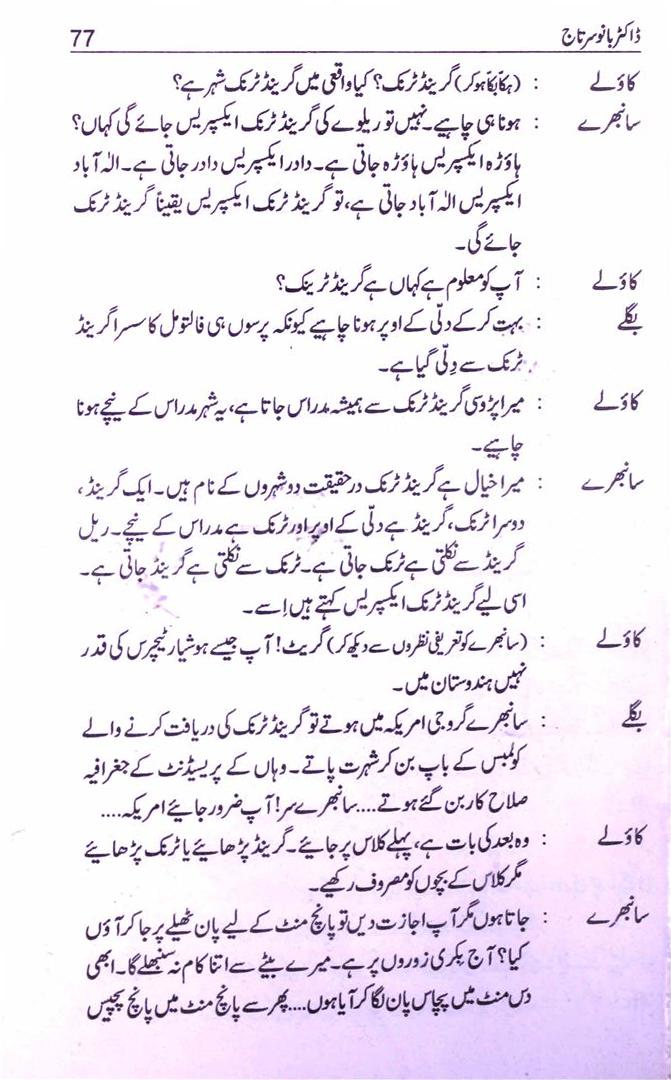 ڈاکٹر بانو سرتاج 77
کاؤلے : (ہکّا بکّا ہو کر) گرینڈ ٹرنک؟ کیا واقعی میں گرینڈ ٹرنک شہر ہے؟
سانبھرے : ہونا ہی چاہیے۔ نہیں تو ریلوے کی گرینڈ ٹرنک ایکسپریس جائے گی کہاں؟
ہاؤڑہ ایکسپریس ہاؤڑہ جاتی ہے۔ دادر ایکسپریس دادر جاتی ہے۔ الٰہ آباد
ایکسپریس الٰہ آباد جاتی ہے، تو گرینڈ ٹرنک ایکسپریس یقیناً گرینڈ ٹرنک
جائے گی۔
کاؤلے : آپ کو معلوم ہے کہاں ہے گرینڈ ٹرینک؟
بگلے : بہت کر کے دلّی کے اوپر ہونا چاہیے کیونکہ پرسوں ہی فالتو مل کا سسرا گرینڈ
ٹرنک سے دِلّی گیا ہے۔
کاؤلے : میرا پڑوسی گرینڈ ٹرنک سے ہمیشہ مدراس جاتا ہے، یہ شہر مدراس کے نیچے ہونا
چاہیے۔
سانبھرے : میرا خیال ہے گرینڈ ٹرنک درحقیقت دو شہروں کے نام ہیں۔ ایک گرینڈ،
دوسرا ٹرنک، گرینڈ ہے دلّی کے اوپر اور ٹرنک ہے مدراس کے نیچے۔ ریل
گرینڈ سے نکلتی ہے ٹرنک جاتی ہے۔ ٹرنک سے نکلتی ہے گرینڈ جاتی ہے۔
اسی لیے گرینڈ ٹرنک ایکسپریس کہتے ہیں اِسے۔
کاؤلے : (سانبھرے کو تعریفی نظروں سے دیکھ کر) گریٹ! آپ جیسے ہوشیار ٹیچرس کی قدر
نہیں ہندوستان میں۔
بگلے : سانبھرے گرو جی امریکہ میں ہوتے تو گرینڈ ٹرنک کی دریافت کرنے والے
کولمبس کے باپ بن کر شہرت پاتے۔ وہاں کے پریسڈنٹ کے جغرافیہ
صلاح کار بن گئے ہوتے.... سانبھرے سر! آپ ضرور جائیے امریکہ....
کاؤلے : وہ بعد کی بات ہے، پہلے کلاس پر جائیے۔ گرینڈ پڑھائیے یا ٹرنک پڑھائیے
مگر کلاس کے بچوں کو مصروف رکھیے۔
سانبھرے : جاتا ہوں مگر آپ اجازت دیں تو پانچ منٹ کے لیے پان ٹھیلے پر جا کر آؤں
کیا؟ آج بکری زوروں پر ہے۔ میرے بیٹے سے اتنا کام نہ سنبھلے گا۔ ابھی
دس منٹ میں پچاس پان لگا کر آیا ہوں.... پھر سے پانچ منٹ میں پانچ پچیس